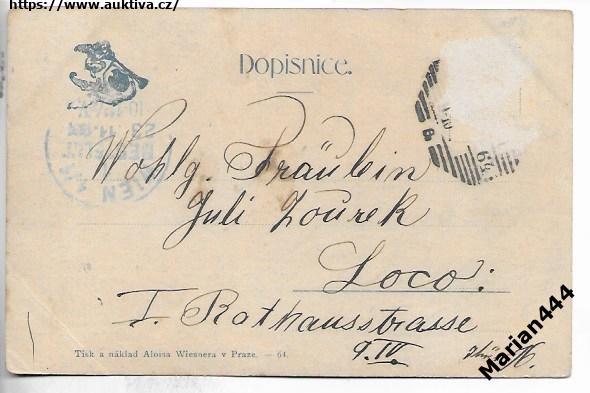 https://www.auktiva.cz/
Dopisnice.
WIEN 1/1
BESTELLT
Wohlg. Fräulein
Juli Zourek
Loco:
I. Rathausstrasse
9. IV.
Tisk a náklad Aloisa Wiesnera v Praze. — 64.
Marian444